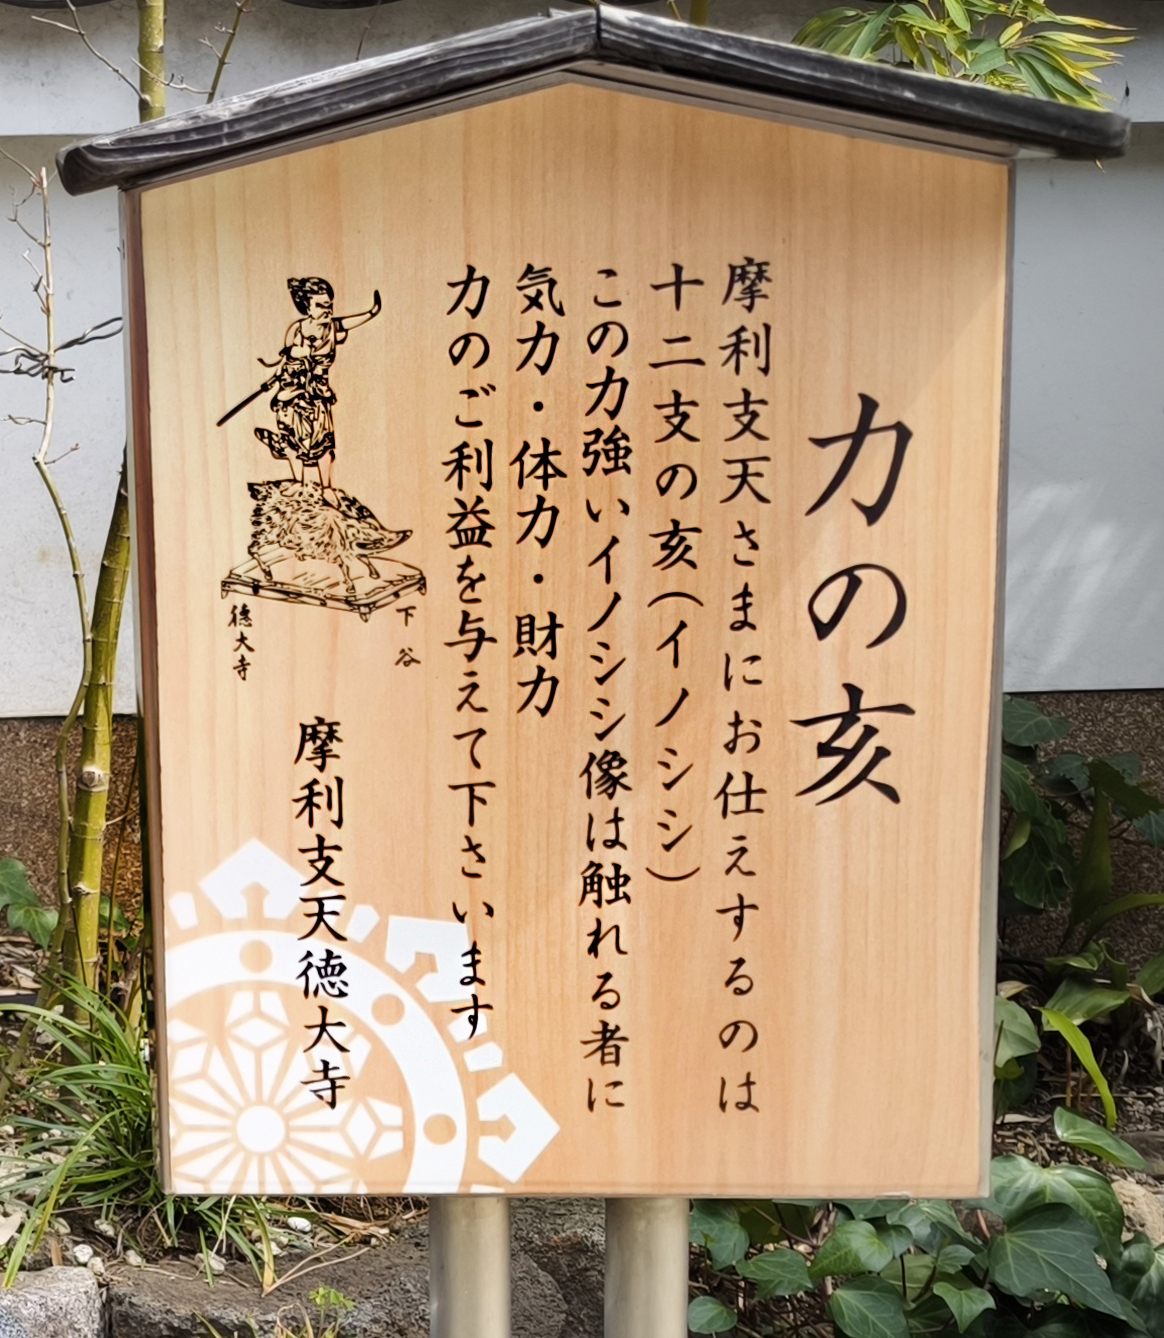 力の亥
摩利支天さまにお仕えするのは
十二支の亥（イノシシ）
この力強いイノシシ像は触れる者に
気力・体力・財力
力のご利益を与えて下さいます
下谷
徳大寺
摩利支天徳大寺